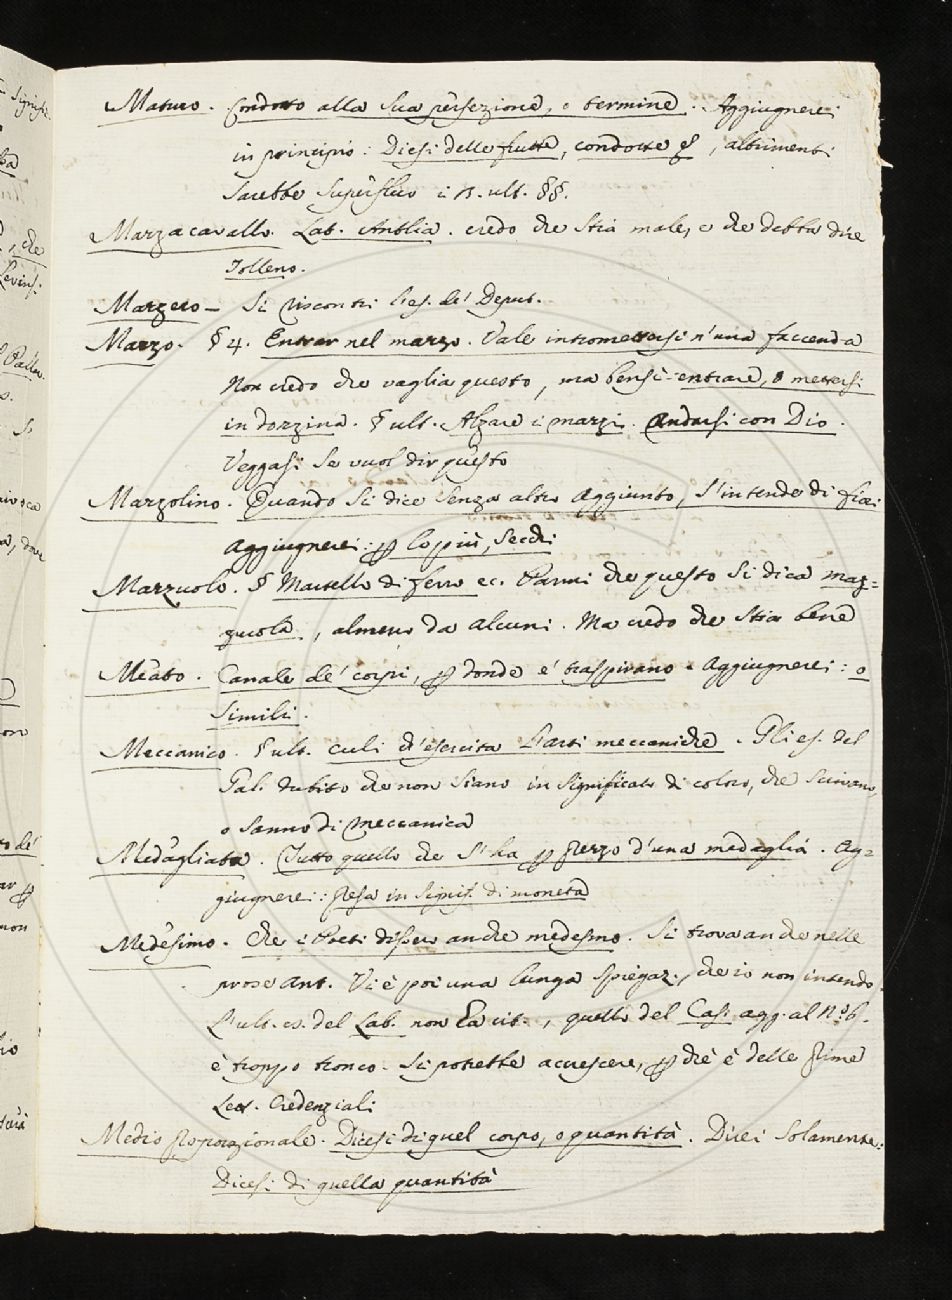 Maturo. Condotto alla sua perfezione, o termine. Aggiugnerei
in principio: Dicesi delle frutte, condotte &, altrimenti
sarebbe superfluo i n. ult. §§.
Marzacavallo. Lab. Antlia. credo che stia male, e che debba dire
Tolleno.
Marzero— Si riscontri l'es. de' Deput.
Marzo. § 4. Entrar nel marzo. Vale intromettersi n'una faccenda
Non credo che vaglia questo, ma bensì entrare, o mettersi
in dozzina. § ult. Alzare i marzi. andarsi con Dio.
Veggasi se vuol dir questo
Marzolino. Quando si dice senza altro aggiunto, s'intende di
Aggiugnerei: lo più, secchi
Mazzuolo. § Martello di ferro ec. Parmi che questo si dica maz=
zuola, almeno da alcuni. Ma credo che stia bene
Meato. Canale de' corpi, donde e' traspirano. Aggiugnerei: o
simili.
Meccanico. § ult. culi ch'esercita l'arti meccaniche. Gli es. del
Gal. dubito che non siano in significato di coloro, che scrivano,
o sanno di meccanica
Medagliata. Tutto quello che s'ha prezzo d'una medaglia. Ag=
giugnerei: presa in signif. di moneta
Medesimo. Che i Poeti dissero anche medesmo. Si trova anche nelle
prose ant. Vi è poi una lunga spiegaz., che io non intendo.
L'ult. es. del Lab. non è a cit., quello del Cas. agg. al n.° 6.
è troppo tronco. Si potrebbe accrescere, che è delle prime
Lett. Credenziali
Medio proporzionale. Dicesi di quel corpo, o quantità. Direi solamente:
Dicesi di quella quantità